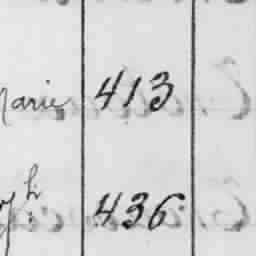 Marie 413
436